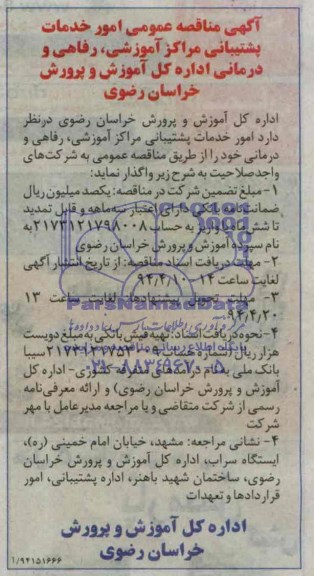 آگهی مناقصه عمومی امور خدمات
پشتیبانی مراکز آموزشی، رفاهی و
درمانی اداره کل آموزش و پرورش
خراسان رضوی
اداره کل آموزش و پرورش خراسان رضوی درنظر
دارد امور خدمات پشتیبانی مراکز آموزشی، رفاهی و
درمانی خود را از طریق مناقصه عمومی به شرکت‌های
واجدصلاحیت به شرح زیر واگذار نماید:
۱- مبلغ تضمین شرکت در مناقصه: یکصد میلیون ریال
ضمانت‌نامه بانکی دارای اعتبار سه‌ماهه و قابل تمدید
تا شش ماه یا واریز به حساب ۲۱۷۳۱۲۱۷۹۸۰۰۸ به
نام سپرده آموزش و پرورش خراسان رضوی
۲- مهلت دریافت اسناد مناقصه: از تاریخ انتشار آگهی
لغایت ساعت ۱۴ ۹۴/۴/۱۰
۳- مهلت تحویل پیشنهادها: لغایت ساعت ۱۳
۹۴/۴/۲۰
۴- نحوه دریافت اسناد: تهیه فیش بانکی به مبلغ دویست
هزار ریال (شماره حساب سیبا
بانک ملی به‌نام درآمدهای متفرقه کشوری- اداره کل
آموزش و پرورش خراسان رضوی) و ارائه معرفی‌نامه
رسمی از شرکت متقاضی و یا مراجعه مدیرعامل با مهر
شرکت
۴- نشانی مراجعه: مشهد، خیابان امام خمینی (ره)،
ایستگاه سراب، اداره کل آموزش و پرورش خراسان
رضوی، ساختمان شهید باهنر، اداره پشتیبانی، امور
قراردادها و تعهدات
اداره کل آموزش و پرورش
خراسان رضوی
۱/۹۴۱۵۱۶۶۶
ParsNamadData
۰۲۱-۸۸۳۴۹۶۷۰-۵